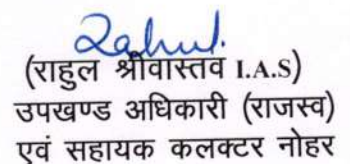 Rahul.
(राहुल श्रीवास्तव I.A.S)
उपखण्ड अधिकारी (राजस्व)
एवं सहायक कलक्टर नोहर